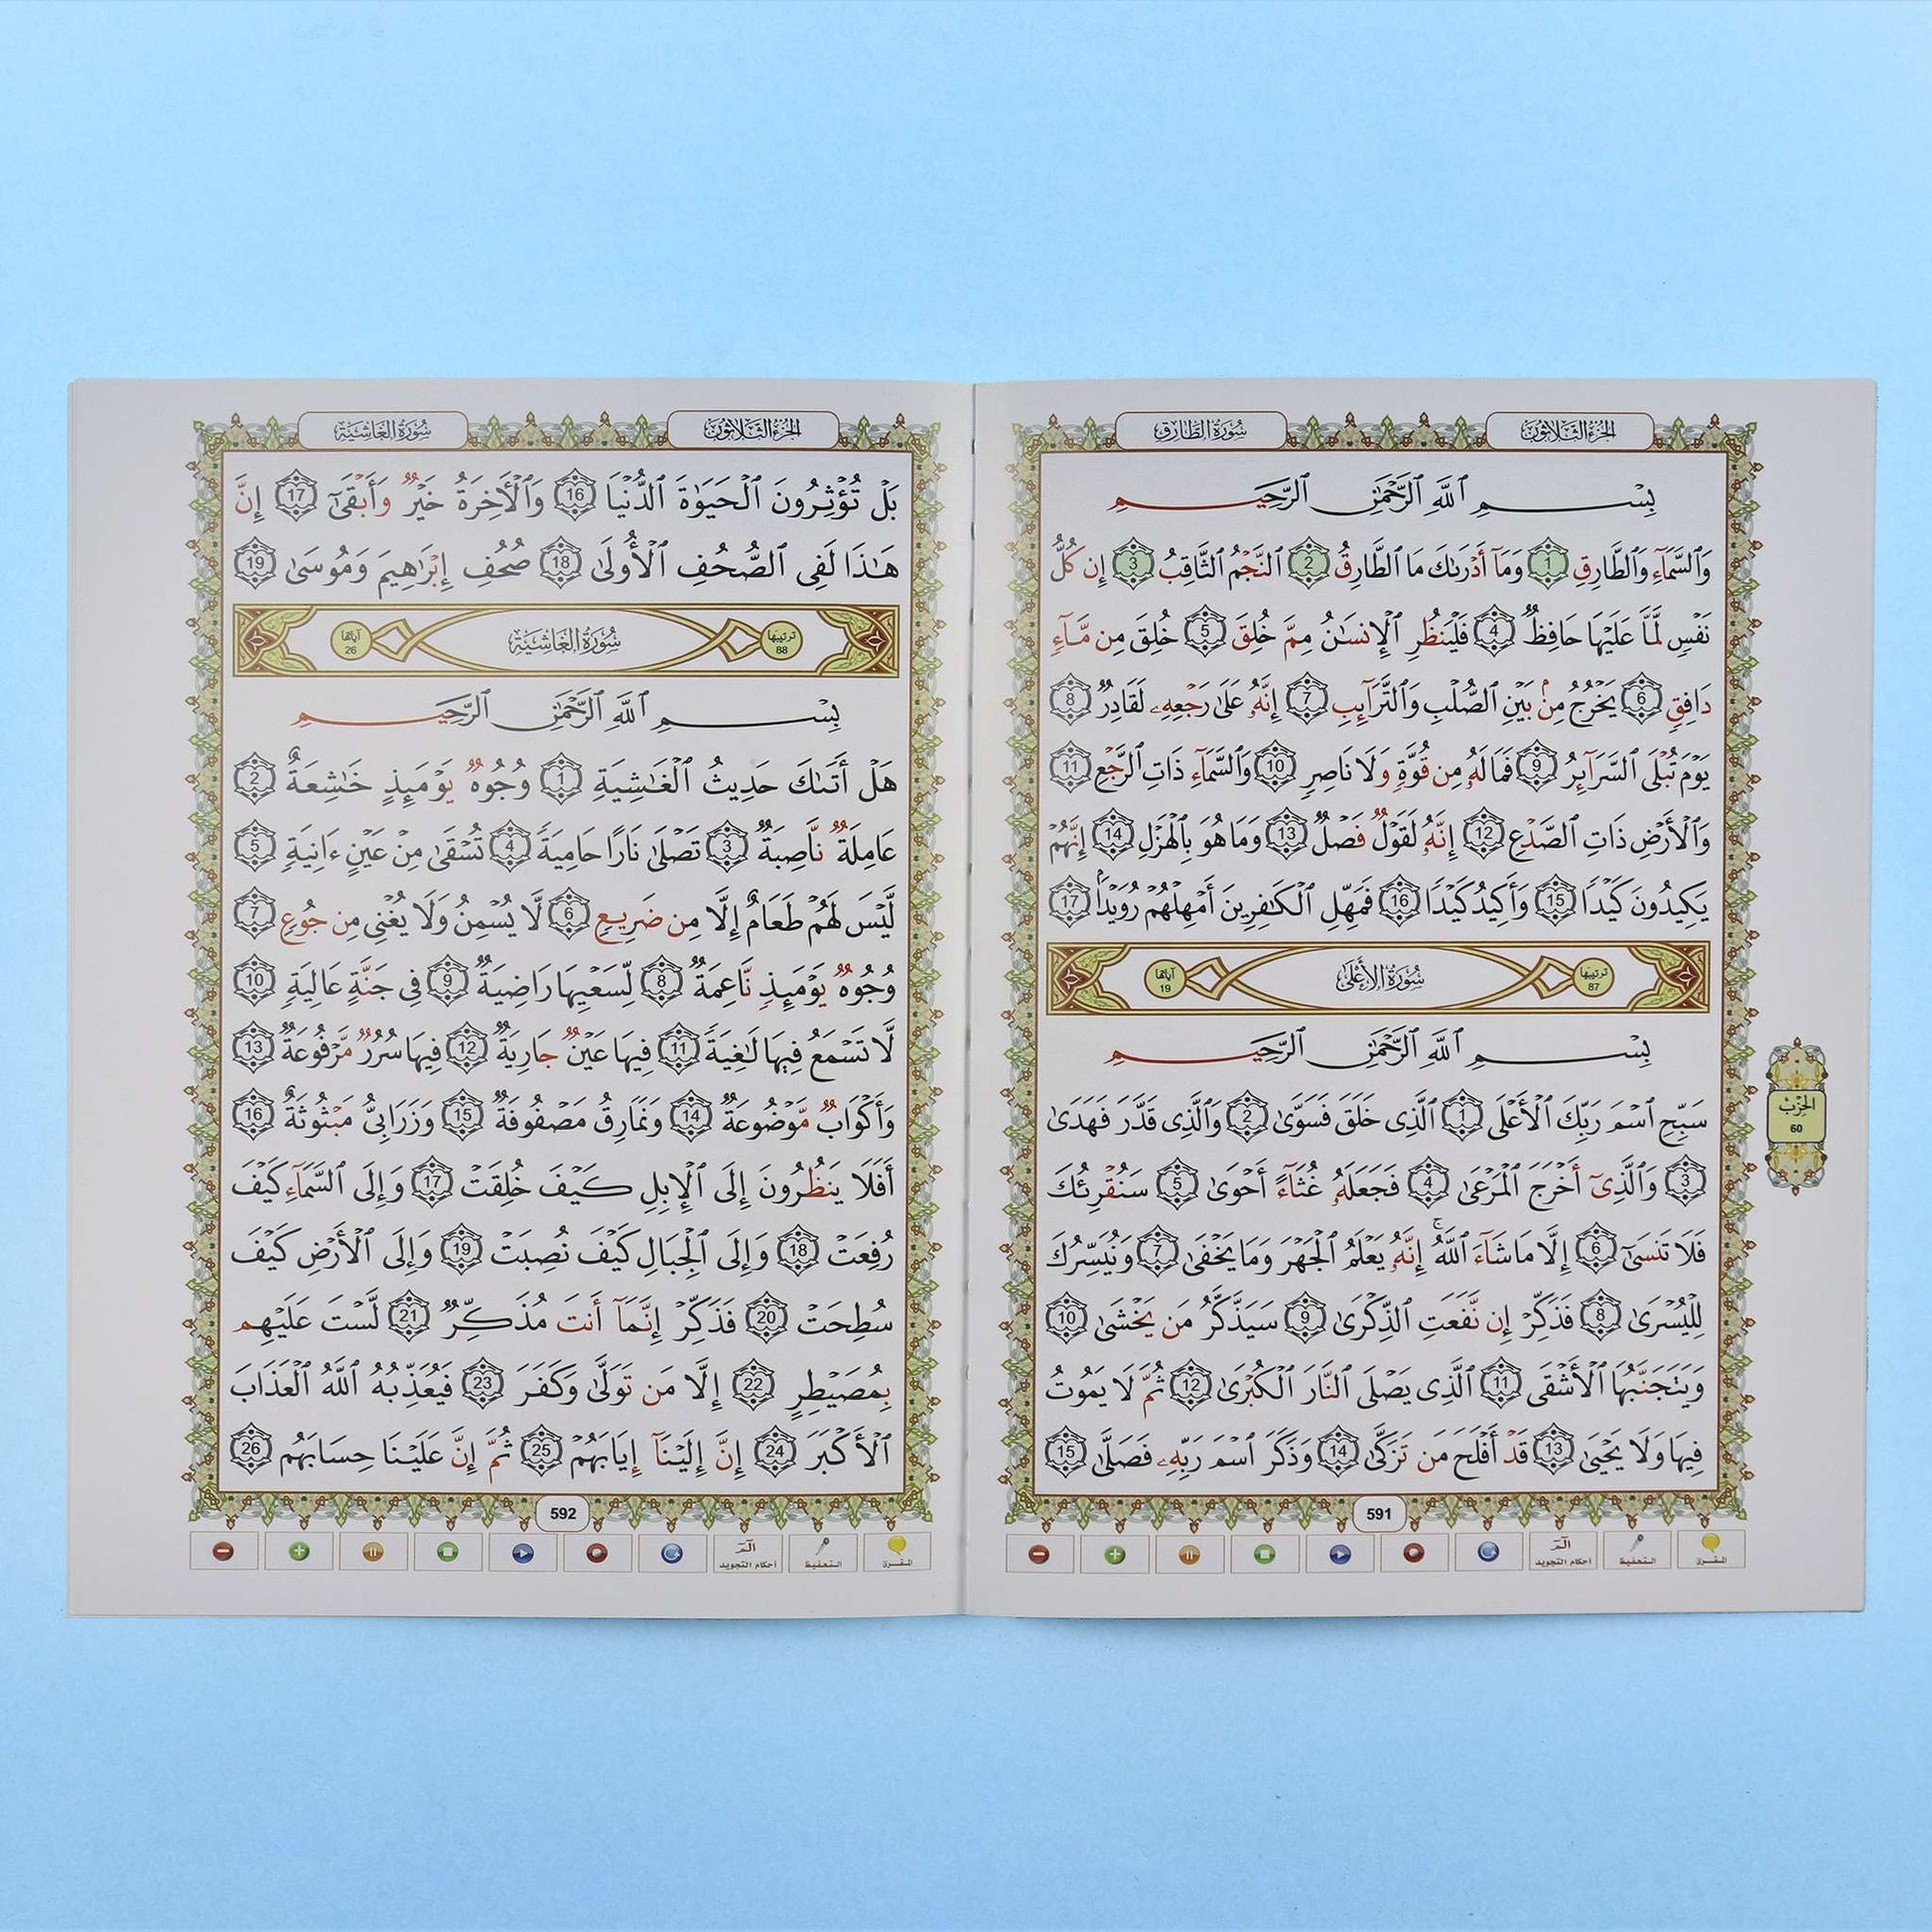 الجزء الثلاثون
سورة الطارق
بِسْمِ ٱللَّهِ ٱلرَّحْمَٰنِ ٱلرَّحِيمِ
وَٱلسَّمَآءِ وَٱلطَّارِقِ 1 وَمَآ أَدْرَىٰكَ مَا ٱلطَّارِقُ 2 ٱلنَّجْمُ ٱلثَّاقِبُ 3 إِن كُلُّ
نَفْسٍ لَّمَّا عَلَيْهَا حَافِظٌ 4 فَلْيَنظُرِ ٱلْإِنسَٰنُ مِمَّ خُلِقَ 5 خُلِقَ مِن مَّآءٍ
دَافِقٍ 6 يَخْرُجُ مِنۢ بَيْنِ ٱلصُّلْبِ وَٱلتَّرَآئِبِ 7 إِنَّهُۥ عَلَىٰ رَجْعِهِۦ لَقَادِرٌ 8
يَوْمَ تُبْلَى ٱلسَّرَآئِرُ 9 فَمَا لَهُۥ مِن قُوَّةٍ وَلَا نَاصِرٍ 10 وَٱلسَّمَآءِ ذَاتِ ٱلرَّجْعِ 11
وَٱلْأَرْضِ ذَاتِ ٱلصَّدْعِ 12 إِنَّهُۥ لَقَوْلٌ فَصْلٌ 13 وَمَا هُوَ بِٱلْهَزْلِ 14 إِنَّهُمْ
يَكِيدُونَ كَيْدًا 15 وَأَكِيدُ كَيْدًا 16 فَمَهِّلِ ٱلْكَٰفِرِينَ أَمْهِلْهُمْ رُوَيْدًۢا 17
ترتيبها 87
سورة الأعلى
آياتها 19
بِسْمِ ٱللَّهِ ٱلرَّحْمَٰنِ ٱلرَّحِيمِ
سَبِّحِ ٱسْمَ رَبِّكَ ٱلْأَعْلَى 1 ٱلَّذِى خَلَقَ فَسَوَّىٰ 2 وَٱلَّذِى قَدَّرَ فَهَدَىٰ
3 وَٱلَّذِىٓ أَخْرَجَ ٱلْمَرْعَىٰ 4 فَجَعَلَهُۥ غُثَآءً أَحْوَىٰ 5 سَنُقْرِئُكَ
فَلَا تَنسَىٰٓ 6 إِلَّا مَا شَآءَ ٱللَّهُ ۚ إِنَّهُۥ يَعْلَمُ ٱلْجَهْرَ وَمَا يَخْفَىٰ 7 وَنُيَسِّرُكَ
لِلْيُسْرَىٰ 8 فَذَكِّرْ إِن نَّفَعَتِ ٱلذِّكْرَىٰ 9 سَيَذَّكَّرُ مَن يَخْشَىٰ 10
وَيَتَجَنَّبُهَا ٱلْأَشْقَى 11 ٱلَّذِى يَصْلَى ٱلنَّارَ ٱلْكُبْرَىٰ 12 ثُمَّ لَا يَمُوتُ
فِيهَا وَلَا يَحْيَىٰ 13 قَدْ أَفْلَحَ مَن تَزَكَّىٰ 14 وَذَكَرَ ٱسْمَ رَبِّهِۦ فَصَلَّىٰ 15
الحزب
60
591
القرئ
التحفيظ
الٓمٓ
أحكام التجويد
الجزء الثلاثون
سورة الغاشية
بَلْ تُؤْثِرُونَ ٱلْحَيَوٰةَ ٱلدُّنْيَا 16 وَٱلْأَخِرَةُ خَيْرٌ وَأَبْقَىٰٓ 17 إِنَّ
هَٰذَا لَفِى ٱلصُّحُفِ ٱلْأُولَىٰ 18 صُحُفِ إِبْرَٰهِيمَ وَمُوسَىٰ 19
ترتيبها 88
سورة الغاشية
آياتها 26
بِسْمِ ٱللَّهِ ٱلرَّحْمَٰنِ ٱلرَّحِيمِ
هَلْ أَتَىٰكَ حَدِيثُ ٱلْغَٰشِيَةِ 1 وُجُوهٌ يَوْمَئِذٍ خَٰشِعَةٌ 2
عَامِلَةٌ نَّاصِبَةٌ 3 تَصْلَىٰ نَارًا حَامِيَةً 4 تُسْقَىٰ مِنْ عَيْنٍ ءَانِيَةٍ 5
لَّيْسَ لَهُمْ طَعَامٌ إِلَّا مِن ضَرِيعٍ 6 لَّا يُسْمِنُ وَلَا يُغْنِى مِن جُوعٍ 7
وُجُوهٌ يَوْمَئِذٍ نَّاعِمَةٌ 8 لِّسَعْيِهَا رَاضِيَةٌ 9 فِى جَنَّةٍ عَالِيَةٍ 10
لَّا تَسْمَعُ فِيهَا لَٰغِيَةً 11 فِيهَا عَيْنٌ جَارِيَةٌ 12 فِيهَا سُرُرٌ مَّرْفُوعَةٌ 13
وَأَكْوَابٌ مَّوْضُوعَةٌ 14 وَنَمَارِقُ مَصْفُوفَةٌ 15 وَزَرَابِىُّ مَبْثُوثَةٌ 16
أَفَلَا يَنظُرُونَ إِلَى ٱلْإِبِلِ كَيْفَ خُلِقَتْ 17 وَإِلَى ٱلسَّمَآءِ كَيْفَ
رُفِعَتْ 18 وَإِلَى ٱلْجِبَالِ كَيْفَ نُصِبَتْ 19 وَإِلَى ٱلْأَرْضِ كَيْفَ
سُطِحَتْ 20 فَذَكِّرْ إِنَّمَآ أَنتَ مُذَكِّرٌ 21 لَّسْتَ عَلَيْهِم
بِمُصَيْطِرٍ 22 إِلَّا مَن تَوَلَّىٰ وَكَفَرَ 23 فَيُعَذِّبُهُ ٱللَّهُ ٱلْعَذَابَ
ٱلْأَكْبَرَ 24 إِنَّ إِلَيْنَآ إِيَابَهُمْ 25 ثُمَّ إِنَّ عَلَيْنَا حِسَابَهُم 26
592
القرئ
التحفيظ
الٓمٓ
أحكام التجويد